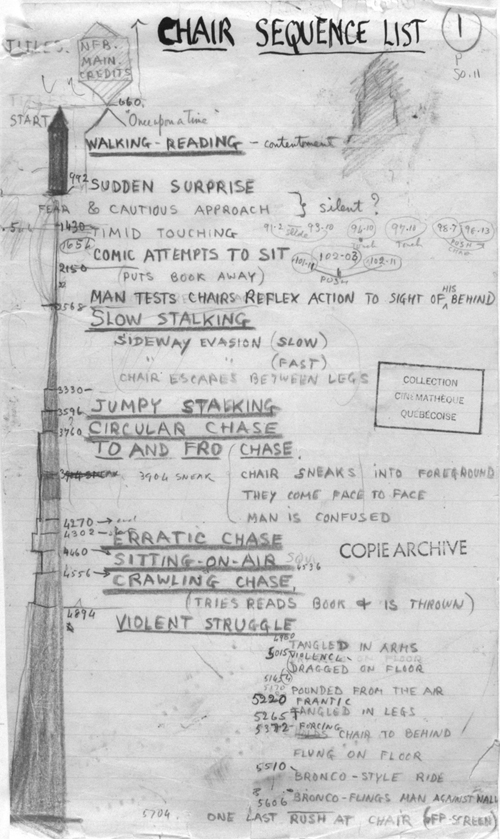 CHAIR SEQUENCE LIST
1
P
50.11
TITLES.
NFB.
MAIN.
CREDITS
660.
START
"Once upon a Time"
WALKING-READING - contentment
992
SUDDEN SURPRISE
FEAR & CAUTIOUS APPROACH } silent?
1430
TIMID TOUCHING
91-2 93-10 96-10 97-11 98-7 98-13
1656
COMIC ATTEMPTS TO SIT
101-11 102-03 102-11
PUSH
2150
(PUTS BOOK AWAY)
MAN TESTS CHAIRS REFLEX ACTION TO SIGHT OF HIS BEHIND)
2568
SLOW STALKING
SIDEWAY EVASION (SLOW)
" " (FAST)
CHAIR ESCAPES BETWEEN LEGS
COLLECTION
CINÉMATHÈQUE
QUÉBÉCOISE
3330
3596
JUMPY STALKING
3760
CIRCULAR CHASE
TO AND FRO CHASE.
3904 SNEAK
CHAIR SNEAKS INTO FOREGROUND
THEY COME FACE TO FACE
MAN IS CONFUSED
4270
4302
ERRATIC CHASE
COPIE ARCHIVE
4460
SITTING-ON-AIR
4536
4556
CRAWLING CHASE.
(TRIES READS BOOK & IS THROWN)
4894
VIOLENT STRUGGLE
4980
TANGLED IN ARMS
5015
VIOLENCE ON FLOOR
DRAGGED ON FLOOR
5165
5170
POUNDED FROM THE AIR
5220
FRANTIC
5265
TANGLED IN LEGS
5372
FORCING
CHAIR TO BEHIND
FLUNG ON FLOOR
5510
BRONCO-STYLE RIDE
5606
BRONCO-FLINGS MAN AGAINST WALL
5704.
ONE LAST RUSH AT CHAIR (OFF-SCREEN)